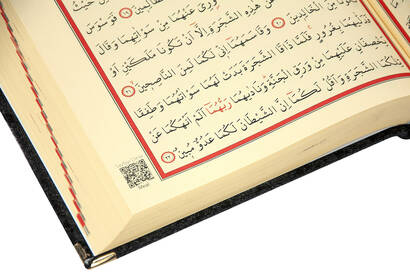 حَيْثُ
فَوَسْوَسَ
وُ۫رِيَ عَنْهُمَا مِنْ سَوْاٰتِهِمَا وَقَالَ
هٰذِهِ الشَّجَرَةِ اِلَّٓا اَنْ تَكُونَا مَلَكَيْنِ اَوْ
مِنَ الْخَالِدِينَ ﴿٢٠﴾ وَقَاسَمَهُمَٓا اِنّ۪ي لَكُمَا لَمِنَ النَّاصِح۪ينَ ﴿٢١﴾
فَدَلّٰيهُمَا بِغُرُورٍ فَلَمَّا ذَاقَا الشَّجَرَةَ بَدَتْ لَهُمَا سَوْاٰتُهُمَا وَطَفِقَا
يَخْصِفَانِ عَلَيْهِمَا مِنْ وَرَقِ الْجَنَّةِ وَنَادٰيهُمَا رَبُّهُمَٓا اَلَمْ اَنْهَكُمَا عَنْ
الشَّجَرَةِ وَاَقُلْ لَكُمَٓا اِنَّ الشَّيْطَانَ لَكُمَا عَدُوٌّ مُب۪ينٌ ﴿٢٢﴾